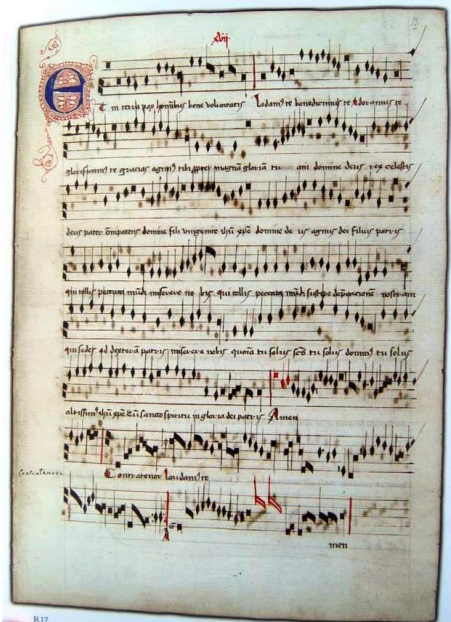 xvij
Et in terra pax hominibus bone voluntatis Laudam9 te benedicimus te Adoramus te
glorificam9 te gracias agim9 tibi propter magnā gloriā tu am domine deus rex celestis
deus pater omīpotens domine fili vnigenite ihū xpē domine de us agnus dei filius patris
qui tollis peccata mūdi miserere no bis qui tollis peccata mūdi suscipe deprecacionē nostram
qui sedes ad dexterā patris miserere nobis quoniā tu solus scs tu solus domin9 tu solus
altissim9 ihū xpē Cū sancto spiritu in gloria dei patris Amen
Contratenor laudam9 te
Contratenor
men
R 17